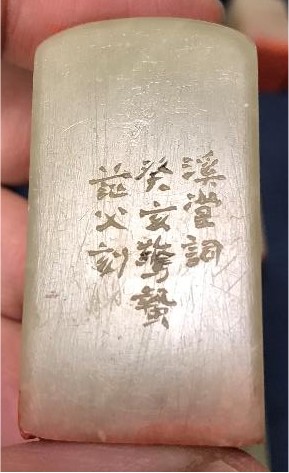 溪堂詞
癸亥驚蟄
茫父刻